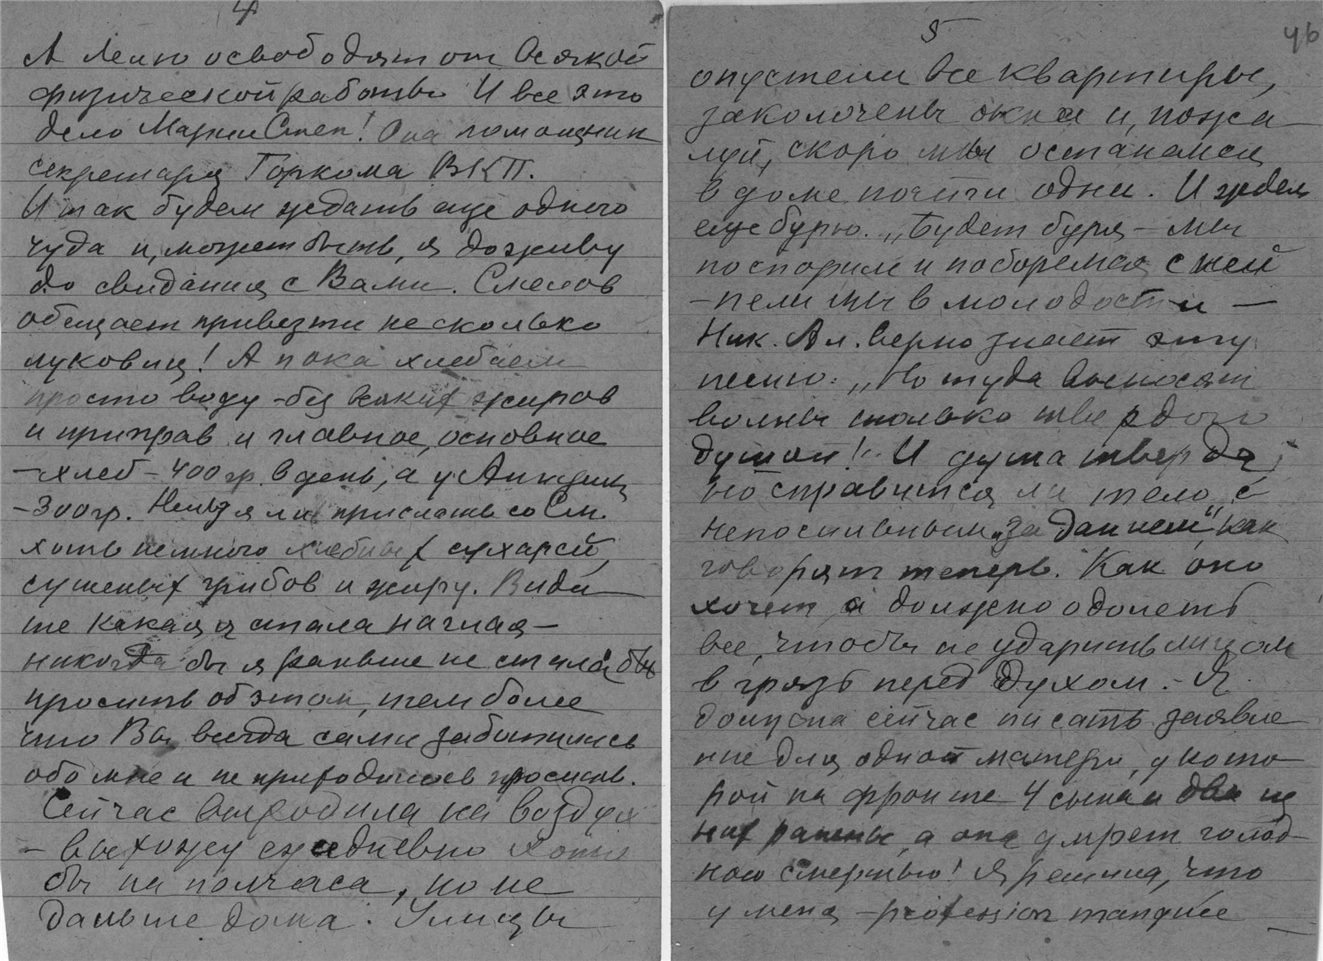 4
А Лелю освободят от всякой
физической работы. И все это
дело Марии Степ! Она помощник
секретаря Горкома ВКП.
Итак будем ждать еще одного
чуда и, может быть, я доживу
до свидания с Вами. Смелов
обещает привезти несколько
луковиц! А пока хлебаем
просто воду – без всяких жиров
и приправ и главное, основное
– хлеб – 400 гр. в день, а у
– 300 гр. Нельзя ли прислать со См.
хоть немного хлебных сухарей,
сушеных грибов и жиру. Види
те какая я стала наглая –
никогда бы я раньше не стала бы
просить об этом, тем более
что Вы всегда сами заботились
обо мне и не приходилось просить.
Сейчас выходила на воздух
– выхожу ежедневно хотя
бы на полчаса, но не
дальше дома. Улицы
5
46
опустели все квартиры,
заколочены окна и, пожа
луй, скоро мы останемся
в доме почти одни. И ждем
еще бурю. „Будет буря – мы
поспорим и поборемся с ней
– пели мы в молодости –
Ник. Ал. верно знает эту
песню: „Но туда выносят
волны только твердого
душой!" И душа тверда,
но справится ли тело с
непосильным „заданием", как
говорят теперь. Как оно
хочет, а должно одолеть
все, чтобы не ударить лицом
в грязь перед Духом. – Я
должна сейчас писать заявле
ние для одной матери, у кото
рой на фронте 4 сына и два из
них ранены, а она умрет голод
ною смертью! Я решила, что
у меня – profession manquée